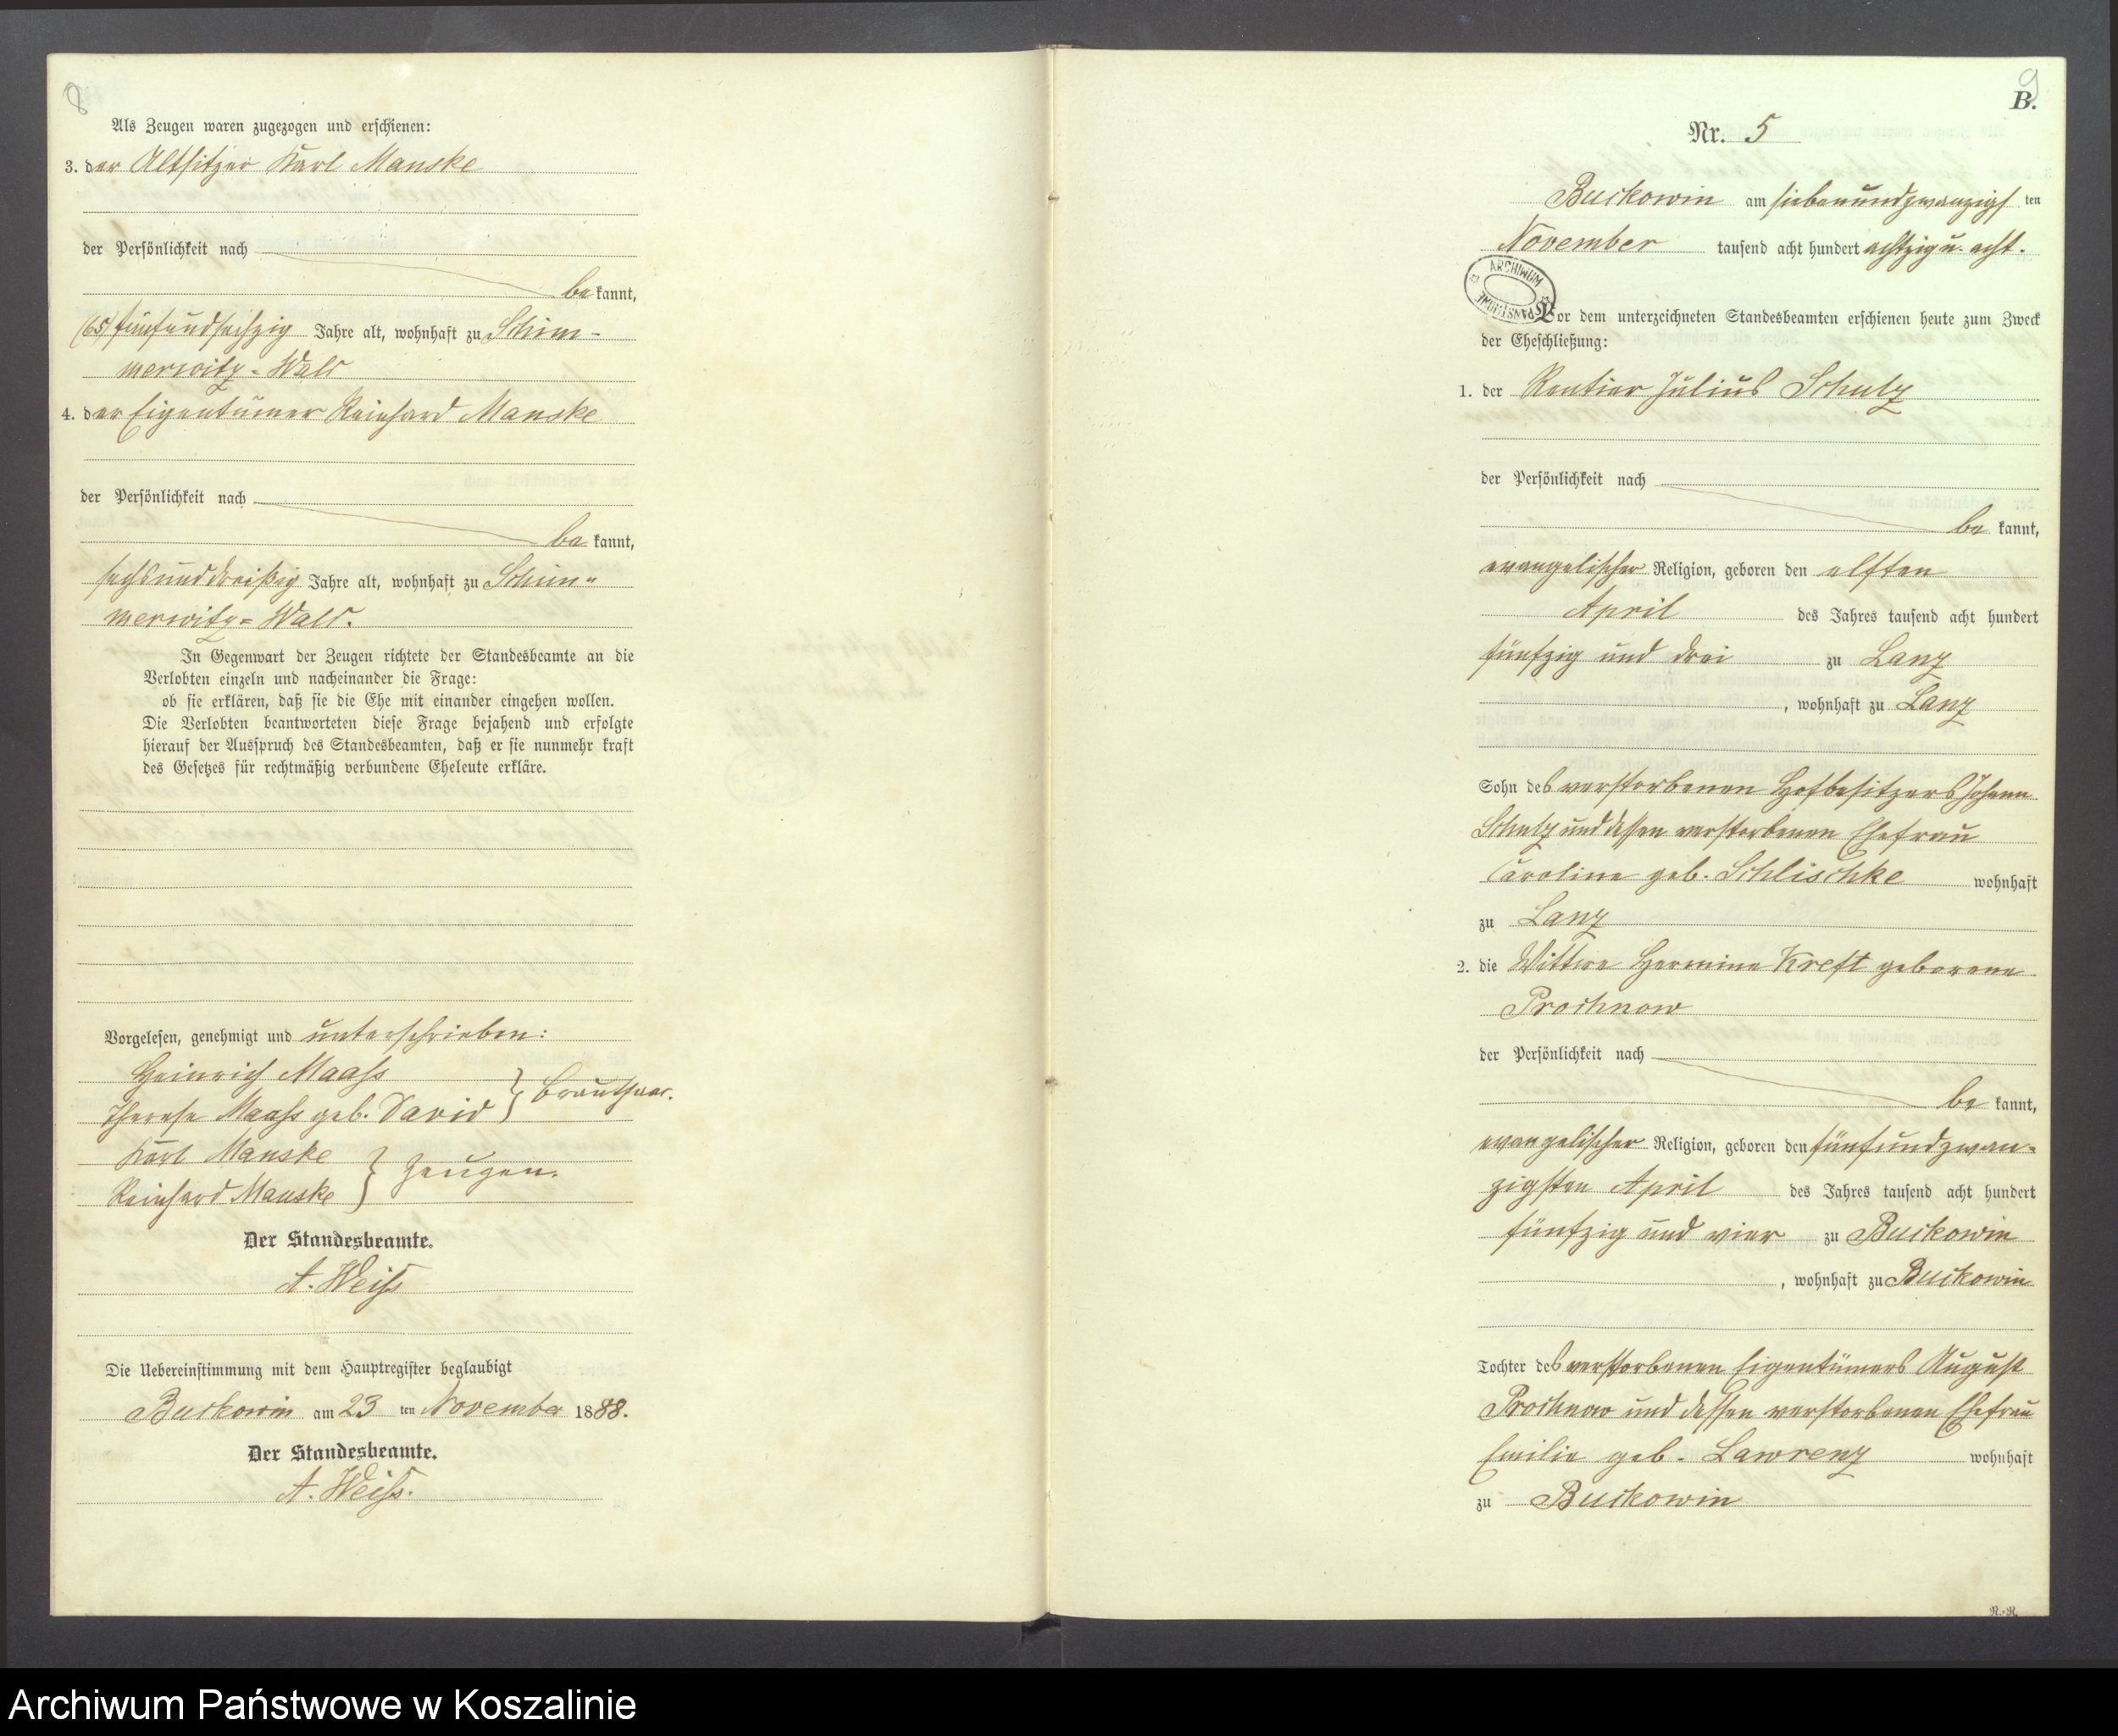 8
Als Zeugen waren zugezogen und erschienen:
3. der Altsitzer Karl Manske
der Persönlichkeit nach
be kannt,
(65) fünfundsechzig Jahre alt, wohnhaft zu Schim-
merwitz-Wald
4. der Eigentümer Reinhard Manske
der Persönlichkeit nach
be kannt,
sechsunddreißig Jahre alt, wohnhaft zu Schim-
merwitz-Wald.
In Gegenwart der Zeugen richtete der Standesbeamte an die
Verlobten einzeln und nacheinander die Frage:
ob sie erklären, daß sie die Ehe mit einander eingehen wollen.
Die Verlobten beantworteten diese Frage bejahend und erfolgte
hierauf der Ausspruch des Standesbeamten, daß er sie nunmehr kraft
des Gesetzes für rechtmäßig verbundene Eheleute erkläre.
Vorgelesen, genehmigt und unterschrieben:
Heinrich Maaß
Therese Maaß geb. David } Brautpaar.
Karl Manske
Reinhard Manske } Zeugen.
Der Standesbeamte.
A. Weiß
Die Uebereinstimmung mit dem Hauptregister beglaubigt
Buckowin am 23 ten November 1888.
Der Standesbeamte.
A. Weiß.
9
B.
Nr. 5
Buckowin am siebenundzwanzigs ten
November tausend acht hundert achtzig u. acht.
ARCHIWUM PAŃSTWOWE
Vor dem unterzeichneten Standesbeamten erschienen heute zum Zweck
der Eheschließung:
1. der Rentier Julius Schulz
der Persönlichkeit nach
be kannt,
evangelischer Religion, geboren den elften
April des Jahres tausend acht hundert
fünfzig und drei zu Lanz
, wohnhaft zu Lanz
Sohn des verstorbenen Hofbesitzers Johann
Schulz und dessen verstorbenen Ehefrau
Caroline geb. Schlischke wohnhaft
zu Lanz
2. die Wittwe Hermine Kreft geborene
Prochnow
der Persönlichkeit nach
be kannt,
evangelischer Religion, geboren den fünfundzwan-
zigsten April des Jahres tausend acht hundert
fünfzig und vier zu Buckowin
, wohnhaft zu Buckowin
Tochter des verstorbenen Eigentümers August
Prochnow und dessen verstorbenen Ehefrau
Emilie geb. Lawrenz wohnhaft
zu Buckowin
R.-R.
Archiwum Państwowe w Koszalinie